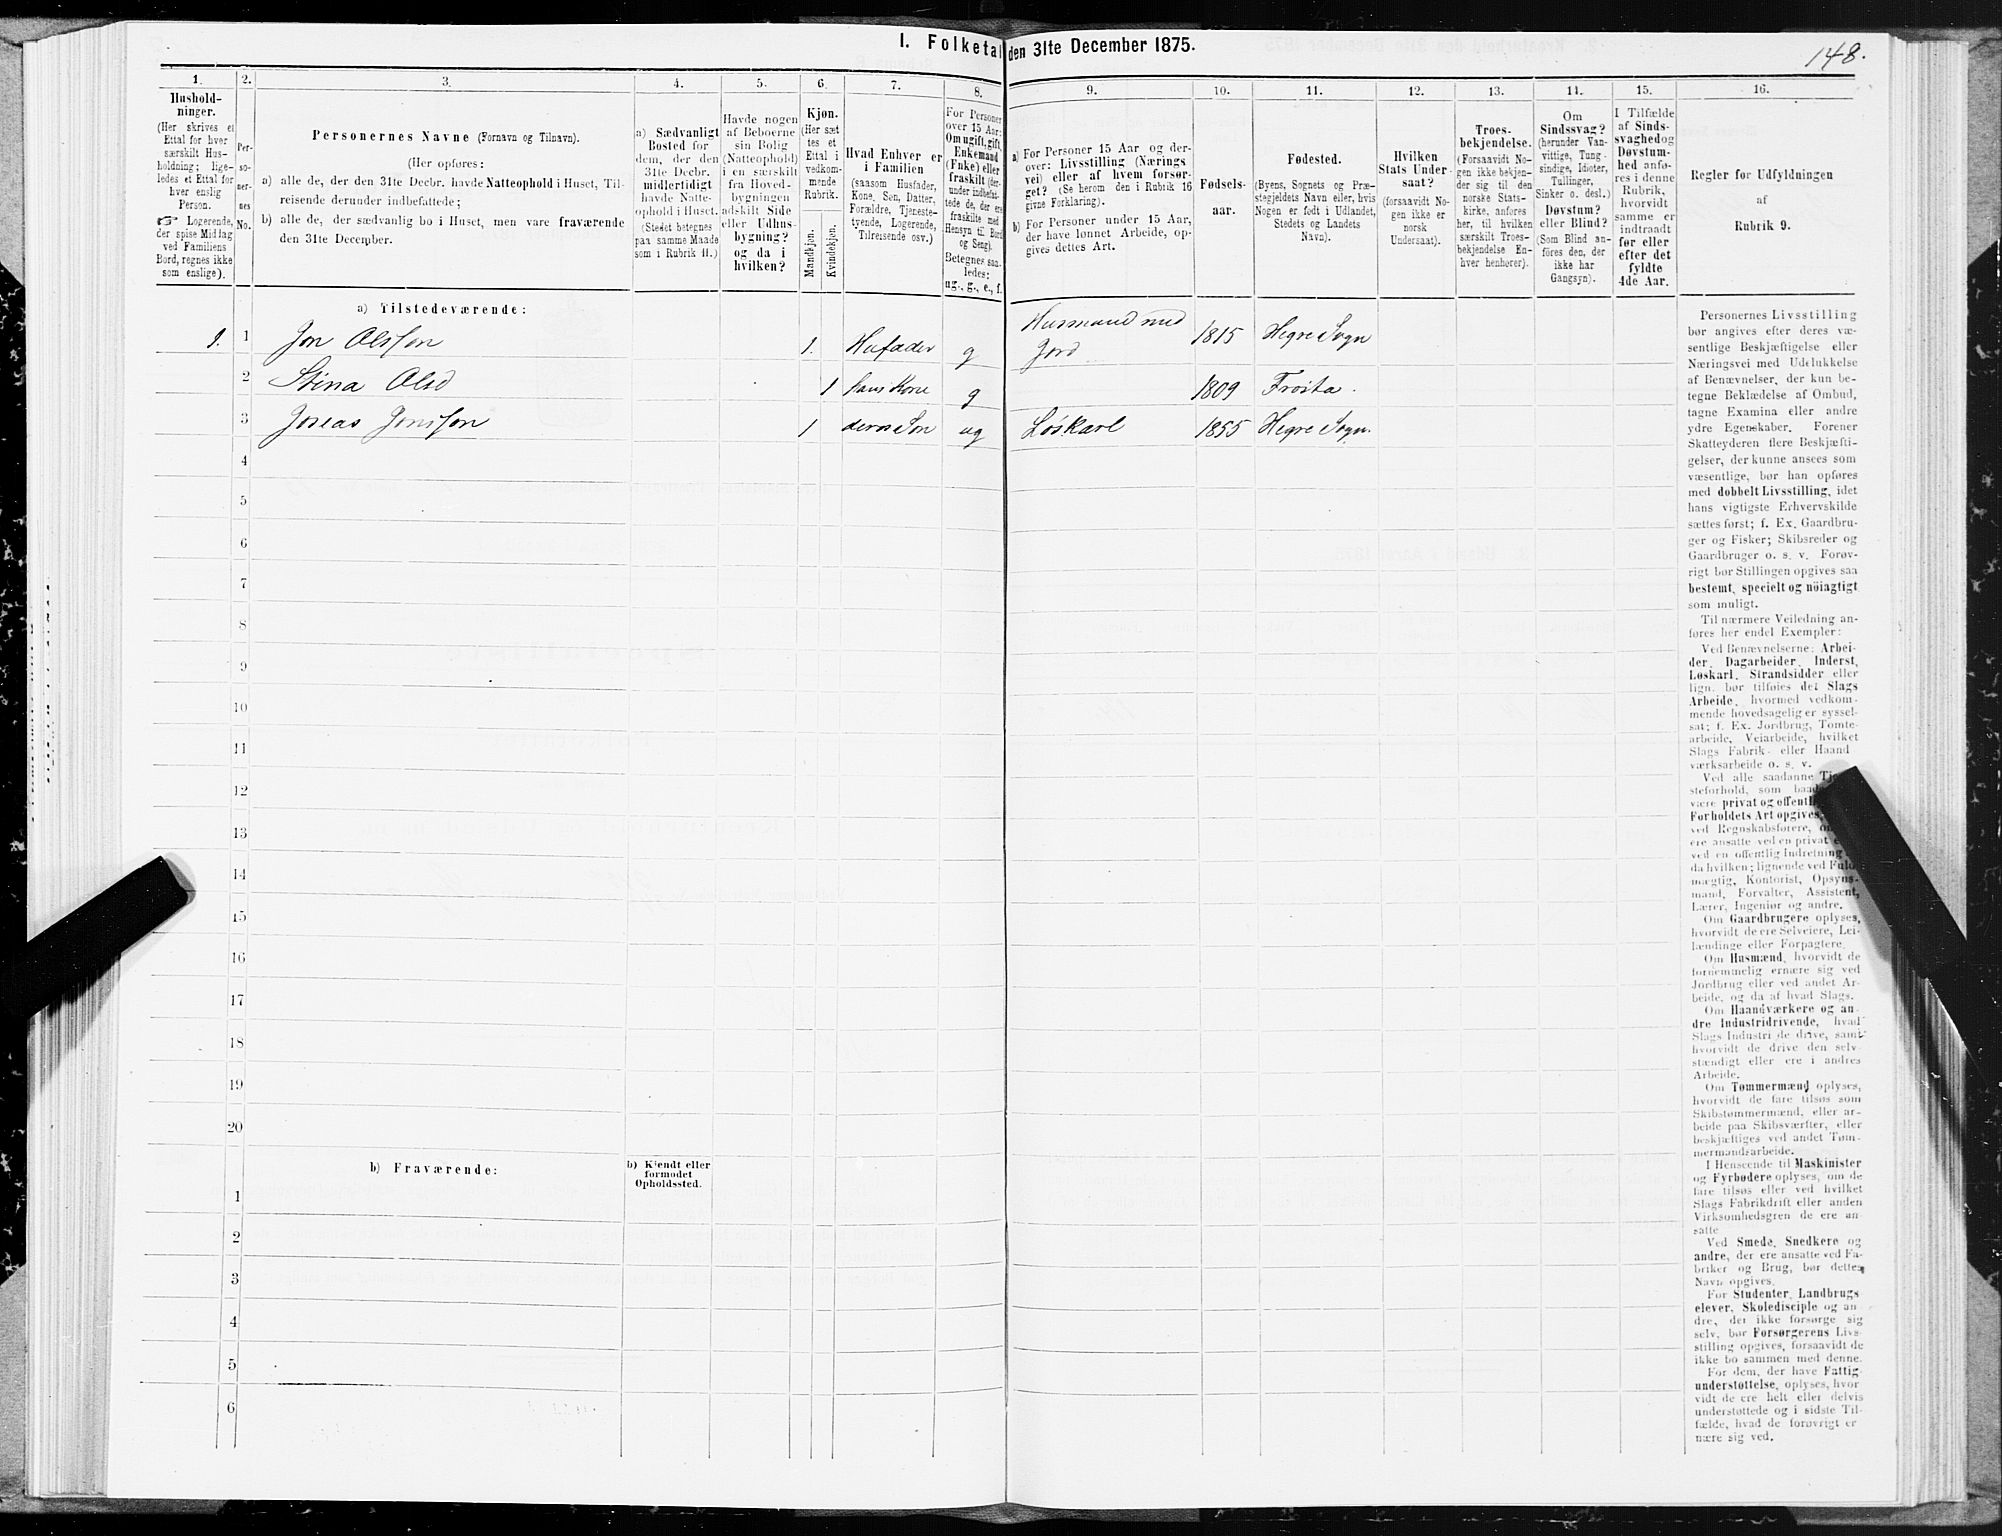 I. Folketal den 31te December 1875.
148.
1.
2.
3.
4.
5.
6.
7.
8.
9.
10.
11.
12.
13.
14.
15.
16.
Hushold-
ninger.
(Her skrives et
Ettal for hver
særskilt Hus-
holdning; lige-
ledes et Ettal for
hver enslig
Person.
☞ Logerende,
der spise Middag
ved Familiens
Bord, regnes ikke
som enslige).
Per-
so-
ner-
nes
No.
Personernes Navne (Fornavn og Tilnavn).
(Her opføres:
a) alle de, der den 31te Decbr. havde Natteophold i Huset, Til-
reisende derunder indbefattede;
b) alle de, der sædvanlig bo i Huset, men vare fraværende
den 31te December.
a) Sædvanligt
Bosted for
dem, der den
31te Decbr.
midlertidigt
havde Natte-
ophold i Huset.
(Stedet betegnes
paa samme Maade
som i Rubrik 11.)
Havde nogen
af Beboerne
sin Bolig
(Natteophold)
i en særskilt
fra Hoved-
bygningen
adskilt Side
eller Udhus-
bygning?
og da i
hvilken?
Kjøn.
(Her sæt-
tes et
Ettal i
vedkom-
mende
Rubrik.
Mandkjøn.
Kvindekjøn.
Hvad Enhver er
i Familien
(saasom Husfader,
Kone, Søn, Datter,
Forældre, Tjeneste-
tyende, Logerende,
Tilreisende osv.)
For Personer
over 15 Aar:
Om ugift, gift,
Enkemand
(Enke) eller
fraskilt (der-
under indbefat-
tede de, der ere
fraskilte med
Hensyn til Bord
og Seng).
Betegnes saa-
ledes:
ug., g., e., f.
a) For Personer 15 Aar og der-
over: Livsstilling (Nærings
vei) eller af hvem forsør-
get? (Se herom den i Rubrik 16
givne Forklaring).
b) For Personer under 15 Aar,
der have lønnet Arbeide, op-
gives dettes Art.
Fødsels-
aar.
Fødested.
(Byens, Sognets og Præ-
stegjeldets Navn eller, hvis
Nogen er født i Udlandet,
Stedets og Landets
Navn).
Hvilken
Stats Under-
saat?
(forsaavidt No-
gen ikke er
norsk
Undersaat).
Troes-
bekjendelse.
(Forsaavidt No-
gen ikke bekjen-
der sig til den
norske Stats-
kirke, anføres
her, til hvilken
særskilt Troes-
bekjendelse En-
hver henhører).
Om
Sindssvag?
(herunder Van-
vittige, Tung-
sindige, Idioter,
Tullinger,
Sinker o. desl.)
Døvstum?
eller Blind?
(Som Blind an-
føres den, der
ikke har
Gangsyn).
I Tilfælde
af Sinds-
svaghed og
Døvstum-
hed anfø-
res i denne
Rubrik,
hvorvidt
samme er
indtraadt
før eller
efter det
fyldte
4de Aar.
Regler før Udfyldningen
af
Rubrik 9.
a) Tilstedeværende:
1. 1 Jon Olsson 1. Hufader g Husmand med Jord 1815 Hegre Sogn
2 Stina Olsd 1 hans Kone g 1809 Frosta.
3 Joseas Jonsson 1 deres Søn ug Løskarl 1855 Hegre Sogn.
4
5
6
7
8
9
10
11
12
13
14
15
16
17
18
19
20
b) Fraværende:
b) Kjendt eller
formodet
Opholdssted.
1
2
3
4
5
6
Personernes Livsstilling
bør angives efter deres væ-
sentlige Beskjæftigelse eller
Næringsvei med Udelukkelse
af Benævnelser, der kun be-
tegne Beklædelse af Ombud,
tagne Examina eller andre
ydre Egenskaber. Forener
Skatteyderen flere Beskjæfti-
gelser, der kunne ansees som
væsentlige, bør han opføres
med dobbelt Livsstilling, idet
hans vigtigste Erhvervskilde
sættes først; f. Ex. Gaardbru-
ger og Fisker; Skibsreder og
Gaardbruger o. s. v. Forøv-
rigt bør Stillingen opgives saa
bestemt, specielt og nöiagtigt
som muligt.
Til nærmere Veiledning an-
føres her endel Exempler:
Ved Benævnelserne: Arbei-
der, Dagarbeider, Inderst,
Løskarl, Strandsidder eller
lign. bør tilføies det Slags
Arbeide, hvormed vedkom-
mende hovedsagelig er syssel-
sat; f. Ex. Jordbrug, Tomte-
arbeide, Veiarbeide, hvilket
Slags Fabrik- eller Haand
værksarbeide o. s. v.
Ved alle saadanne
steforhold, som
være privat og
Forholdets Art opgives,
ved Regnskabsførere,
ere ansatte ved en privat
ved en offentlig Indretning
da hvilken; lignende ved
mægtig, Kontorist, Opsyns-
mand, Forvalter, Assistent,
Lærer, Ingeniør og andre.
Om Gaardbrugere oplyses,
hvorvidt de ere Selveiere, Lei-
lændinge eller Forpagtere.
Om Husmænd, hvorvidt de
fornemmelig ernære sig ved
Jordbrug eller ved andet Ar-
beide, og da af hvad Slags.
Om Haandværkere og an-
dre Industridrivende, hvad
Slags Industri de drive, samt
hvorvidt de drive den selv-
stændigt eller ere i andres
Arbeide.
Om Tømmermænd oplyses,
hvorvidt de fare tilsøs som
Skibstømmermænd, eller ar-
beide paa Skibsværfter, eller
beskjæftiges ved andet Tøm-
mermandsarbeide.
I Henseende til Maskinister
og Fyrbødere oplyses, om de
fare tilsøs eller ved hvilket
Slags Fabrikdrift eller anden
Virksomhedsgren de ere an-
satte
Ved Smede, Snedkere og
andre, der ere ansatte ved Fa-
briker og Brug, bør dettes
Navn opgives.
For Studenter, Landbrugs
elever, Skoledisciple og an-
dre, der ikke forsørge sig
selv, bør Forsørgerens Livs-
stilling opgives, forsaavidt de
ikke bo sammen med denne.
For dem, der have Fattig
understøttelse, oplyses, hvor
vidt de ere helt eller delvis
understøttede og i sidste Til-
fælde, hvad de forøvrigt er
nære sig ved.